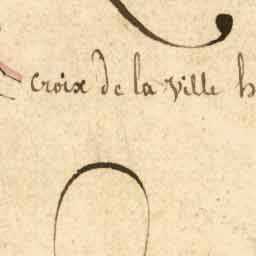 croix de la ville